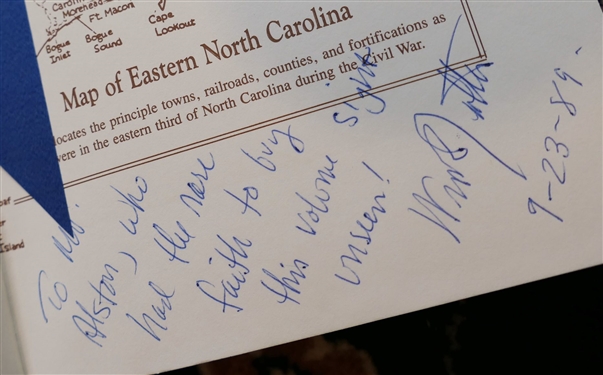 Cardin
Morehead
Ft. Macon
Bogue
Inlet
Bogue
Sound
Cape
Lookout
Map of Eastern North Carolina
locates the principle towns, railroads, counties, and fortifications as
were in the eastern third of North Carolina during the Civil War.
To Mr.
Alston, who
had the rare
faith to buy
this volume sight
unseen!
Wm. R.
9-23-89.
Island